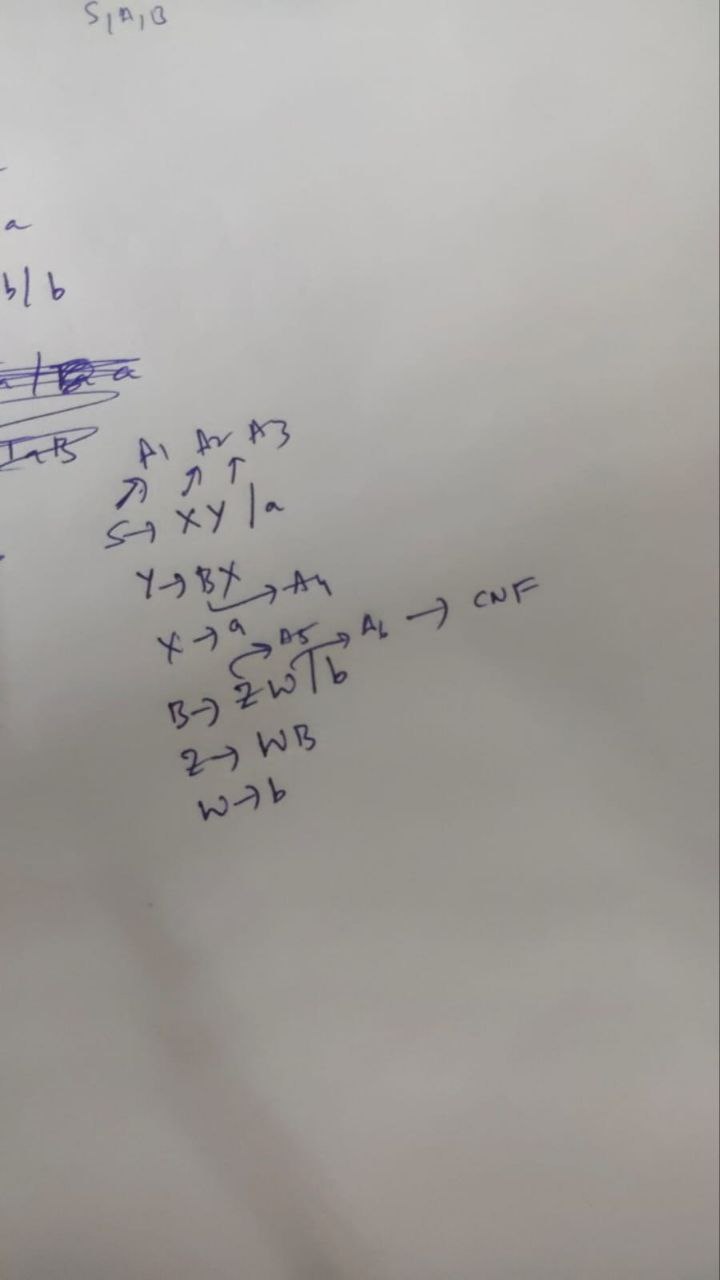 S, A, B
a
b / b
A1 A2 A3
S → X Y / a
Y → B X → A4
X → a
A5 A6 → CNF
B → Z W / b
Z → W B
W → b